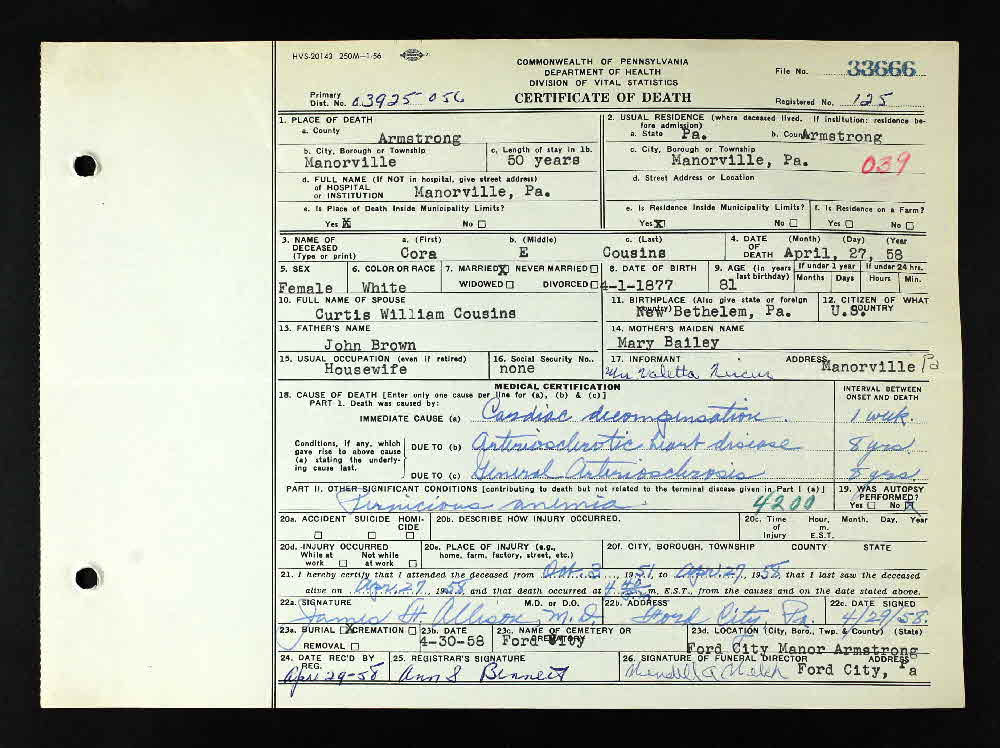 HVS-20143 250M—1-56
COMMONWEALTH OF PENNSYLVANIA
DEPARTMENT OF HEALTH
DIVISION OF VITAL STATISTICS
CERTIFICATE OF DEATH
File No. 33666
Primary Dist. No. 03925-056
Registered No. 125
1. PLACE OF DEATH
a. County
Armstrong
2. USUAL RESIDENCE (where deceased lived. If institution: residence before admission)
a. State Pa. b. County Armstrong
b. City, Borough or Township
Manorville
c. Length of stay in 1b.
50 years
c. City, Borough or Township
Manorville, Pa.
039
d. FULL NAME (If NOT in hospital, give street address)
of HOSPITAL
or INSTITUTION Manorville, Pa.
d. Street Address or Location
e. Is Place of Death Inside Municipality Limits?
Yes X No
e. Is Residence Inside Municipality Limits?
Yes X No
f. Is Residence on a Farm?
Yes No
3. NAME OF DECEASED (Type or print)
a. (First) b. (Middle) c. (Last)
Cora E Cousins
4. DATE OF DEATH (Month) (Day) (Year
April, 27, 58
5. SEX
Female
6. COLOR OR RACE
White
7. MARRIED X NEVER MARRIED
WIDOWED DIVORCED
8. DATE OF BIRTH
4-1-1877
9. AGE (in years last birthday)
81
If under 1 year If under 24 hrs.
Months Days Hours Min.
10. FULL NAME OF SPOUSE
Curtis William Cousins
11. BIRTHPLACE (Also give state or foreign country)
New Bethelem, Pa.
12. CITIZEN OF WHAT COUNTRY
U.S.
13. FATHER'S NAME
John Brown
14. MOTHER'S MAIDEN NAME
Mary Bailey
15. USUAL OCCUPATION (even if retired)
Housewife
16. Social Security No..
none
17. INFORMANT ADDRESS
Valetta Manorville Pa
MEDICAL CERTIFICATION
18. CAUSE OF DEATH [Enter only one cause per line for (a), (b) & (c)]
PART I. Death was caused by:
INTERVAL BETWEEN
ONSET AND DEATH
IMMEDIATE CAUSE (a) Cardiac decompensation. 1 week.
Conditions, if any, which gave rise to above cause (a) stating the underlying cause last.
DUE TO (b) Arteriosclerotic heart disease 8 yrs
DUE TO (c) General Arteriosclerosis 8 yrs.
PART II. OTHER SIGNIFICANT CONDITIONS [contributing to death but not related to the terminal disease given in Part I (a)]
Pernicious anemia
4200
19. WAS AUTOPSY PERFORMED?
Yes No X
20a. ACCIDENT SUICIDE HOMICIDE
20b. DESCRIBE HOW INJURY OCCURRED.
20c. Time of Injury Hour, m. E.S.T. Month, Day, Year
20d. INJURY OCCURRED
While at work Not while at work
20e. PLACE OF INJURY (e.g., home, farm, factory, street, etc.)
20f. CITY, BOROUGH, TOWNSHIP COUNTY STATE
21. I hereby certify that I attended the deceased from Oct. 3, 1951, to Apr. 27, 1958, that I last saw the deceased
alive on Apr. 27, 1958, and that death occurred at m. E.S.T., from the causes and on the date stated above.
22a. SIGNATURE M.D. or D.O.
James H. Allison, M.D.
22b. ADDRESS
Ford City, Pa.
22c. DATE SIGNED
4/29/58.
23a. BURIAL X CREMATION
REMOVAL
23b. DATE
4-30-58
23c. NAME OF CEMETERY OR CREMATORY
Ford City
23d. LOCATION (City, Boro., Twp. & County) (State)
Ford City Manor Armstrong
24. DATE REC'D BY REG.
Apr 29-58
25. REGISTRAR'S SIGNATURE
Ann S Bennett
26. SIGNATURE OF FUNERAL DIRECTOR ADDRESS
Welch Ford City, Pa